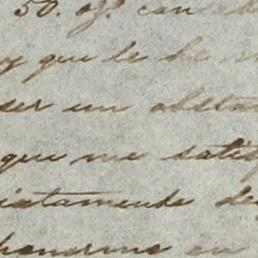 50.
y que le he
ser un obsta
que me satis
istamente de
ponerme en